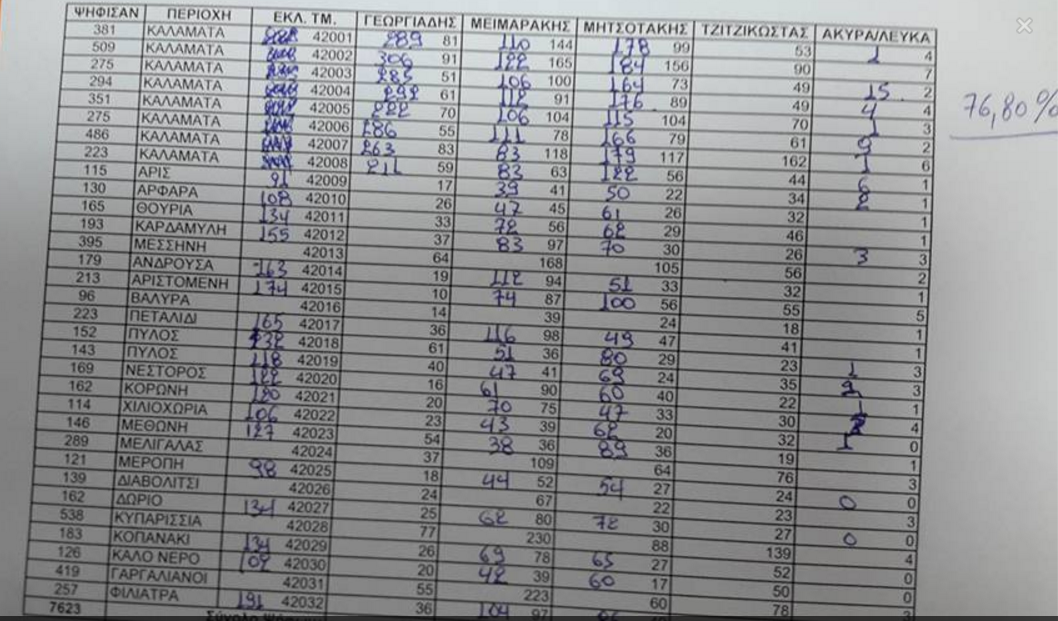 ΨΗΦΙΣΑΝ ΠΕΡΙΟΧΗ ΕΚΛ. ΤΜ. ΓΕΩΡΓΙΑΔΗΣ ΜΕΙΜΑΡΑΚΗΣ ΜΗΤΣΟΤΑΚΗΣ ΤΖΙΤΖΙΚΩΣΤΑΣ ΑΚΥΡΑ/ΛΕΥΚΑ
381 ΚΑΛΑΜΑΤΑ 42001 289 81 110 144 178 99 53 1 4
509 ΚΑΛΑΜΑΤΑ 42002 306 91 122 165 184 156 90 7
275 ΚΑΛΑΜΑΤΑ 42003 285 51 106 100 164 73 49 15 2
294 ΚΑΛΑΜΑΤΑ 42004 292 61 112 91 176 89 49 4 4
351 ΚΑΛΑΜΑΤΑ 42005 222 70 106 104 115 104 70 1 3
275 ΚΑΛΑΜΑΤΑ 42006 286 55 111 78 166 79 61 9 2
486 ΚΑΛΑΜΑΤΑ 42007 263 83 83 118 179 117 162 1 6
223 ΚΑΛΑΜΑΤΑ 42008 211 59 83 63 122 56 44 6 1
115 ΑΡΙΣ 91 42009 17 39 41 50 22 34 2 1
130 ΑΡΦΑΡΑ 108 42010 26 47 45 61 26 32 1
165 ΘΟΥΡΙΑ 134 42011 33 72 56 62 29 46 1
193 ΚΑΡΔΑΜΥΛΗ 155 42012 37 83 97 70 30 26 3 3
395 ΜΕΣΣΗΝΗ 42013 64 168 105 56 2
179 ΑΝΔΡΟΥΣΑ 163 42014 19 112 94 51 33 32 1
213 ΑΡΙΣΤΟΜΕΝΗ 174 42015 10 74 87 100 56 55 5
96 ΒΑΛΥΡΑ 42016 14 39 24 18 1
223 ΠΕΤΑΛΙΔΙ 165 42017 36 116 98 49 47 41 1
152 ΠΥΛΟΣ 132 42018 61 51 36 80 29 23 1 3
143 ΠΥΛΟΣ 118 42019 40 47 41 69 24 35 2 3
169 ΝΕΣΤΟΡΟΣ 122 42020 16 61 90 60 40 22 1 1
162 ΚΟΡΩΝΗ 120 42021 20 70 75 47 33 30 4
114 ΧΙΛΙΟΧΩΡΙΑ 106 42022 23 43 39 62 20 32 1 0
146 ΜΕΘΩΝΗ 127 42023 54 38 36 89 36 19 1
289 ΜΕΛΙΓΑΛΑΣ 42024 37 109 64 76 3
121 ΜΕΡΟΠΗ 98 42025 18 44 52 54 27 24 0 0
139 ΔΙΑΒΟΛΙΤΣΙ 42026 24 67 22 23 3
162 ΔΩΡΙΟ 134 42027 25 62 80 72 30 27 0 0
538 ΚΥΠΑΡΙΣΣΙΑ 42028 77 230 88 139 4
183 ΚΟΠΑΝΑΚΙ 134 42029 26 69 78 65 27 52 0
126 ΚΑΛΟ ΝΕΡΟ 109 42030 20 42 39 60 17 50 0
419 ΓΑΡΓΑΛΙΑΝΟΙ 42031 55 223 60 78 3
257 ΦΙΛΙΑΤΡΑ 191 42032 36 104 97
7623
76,80%